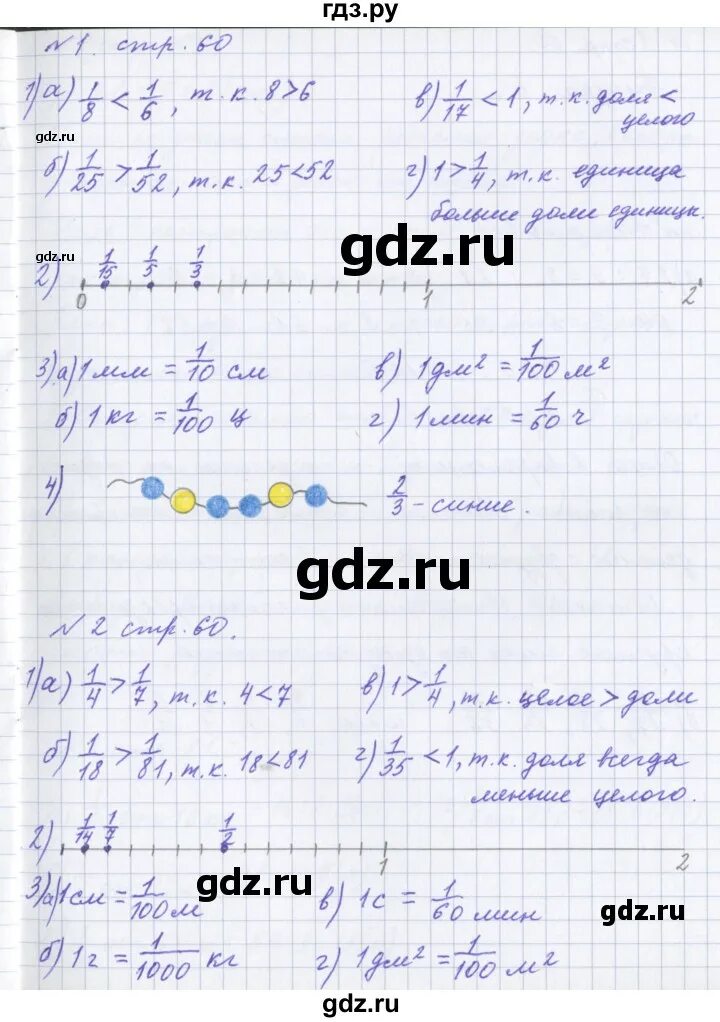 гдз.ру
№1. стр. 60
1) а) 1/8 < 1/6, т. к. 8>6
в) 1/17 < 1, т. к. доля < целого
gdz.ru
б) 1/25 > 1/52, т. к. 25<52
г) 1 > 1/4, т. к. единица
больше доли единицы.
gdz.ru
gdz.ru
2) 1/15 1/5 1/3
0 1 2
3) а) 1 мм = 1/10 см
в) 1 дм² = 1/100 м²
б) 1 кг = 1/100 ц
г) 1 мин = 1/60 ч
4) 2/3 - синие.
gdz.ru
№2 стр. 60.
1) а) 1/4 > 1/7, т. к. 4<7
в) 1 > 1/4, т. к. целое > доли
б) 1/18 > 1/81, т. к. 18<81
г) 1/35 < 1, т. к. доля всегда
меньше целого.
2) 1/14 1/7 1/2
1 2
gdz.ru
3) а) 1 см = 1/100 м
в) 1 с = 1/60 мин
gdz.ru
б) 1 г = 1/1000 кг
г) 1 дм² = 1/100 м²
gdz.ru